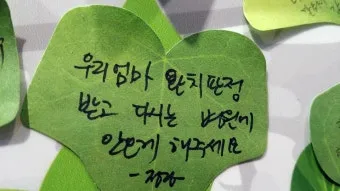 우리엄마 완치판정
받고 다시는 병원에
안오게 해주세요